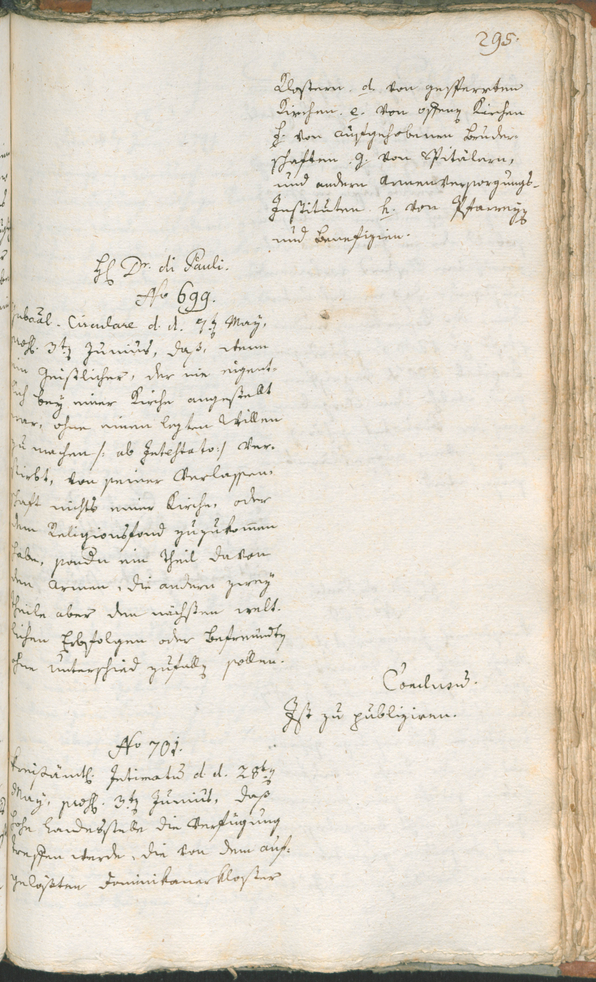 295.
Klostern. d. von gesperrten
Kirchen. e. von offenen Kirchen
f. von aufgehobenen Bruder-
schaften. g. von Spitälern,
und andern Armenversorgungs-
Instituten. h. von Pfarreyen
und Benefizien.
H Dr. di Pauli.
No 699.
Gubernal. Circulare d. d. 7t May,
prs. 3tn Junius, daß, wenn
ein Geistlicher, der nie eigent-
lich bey einer Kirche angestellt
war, ohne einen lezten Willen
zu machen /: ab Intestato :/ ver-
stirbt, von seiner Verlassen-
schaft nichts einer Kirche, oder
dem Religionsfond zuzukommen
habe, sondern ein Theil davon
den Armen, die andern zwey
Theile aber den nächsten welt-
lichen Erbfolgern oder Befreundten
ohne Unterschied zufallen sollen.
Conclusum.
Ist zu publiziren.
No 701.
Kreisämtl. Intimatum d. d. 28tn
May, prs. 3tn Junius, daß
hohe Landesstelle die Verfügung
treffen werde, die von dem auf-
gelösten Dominikanerkloster